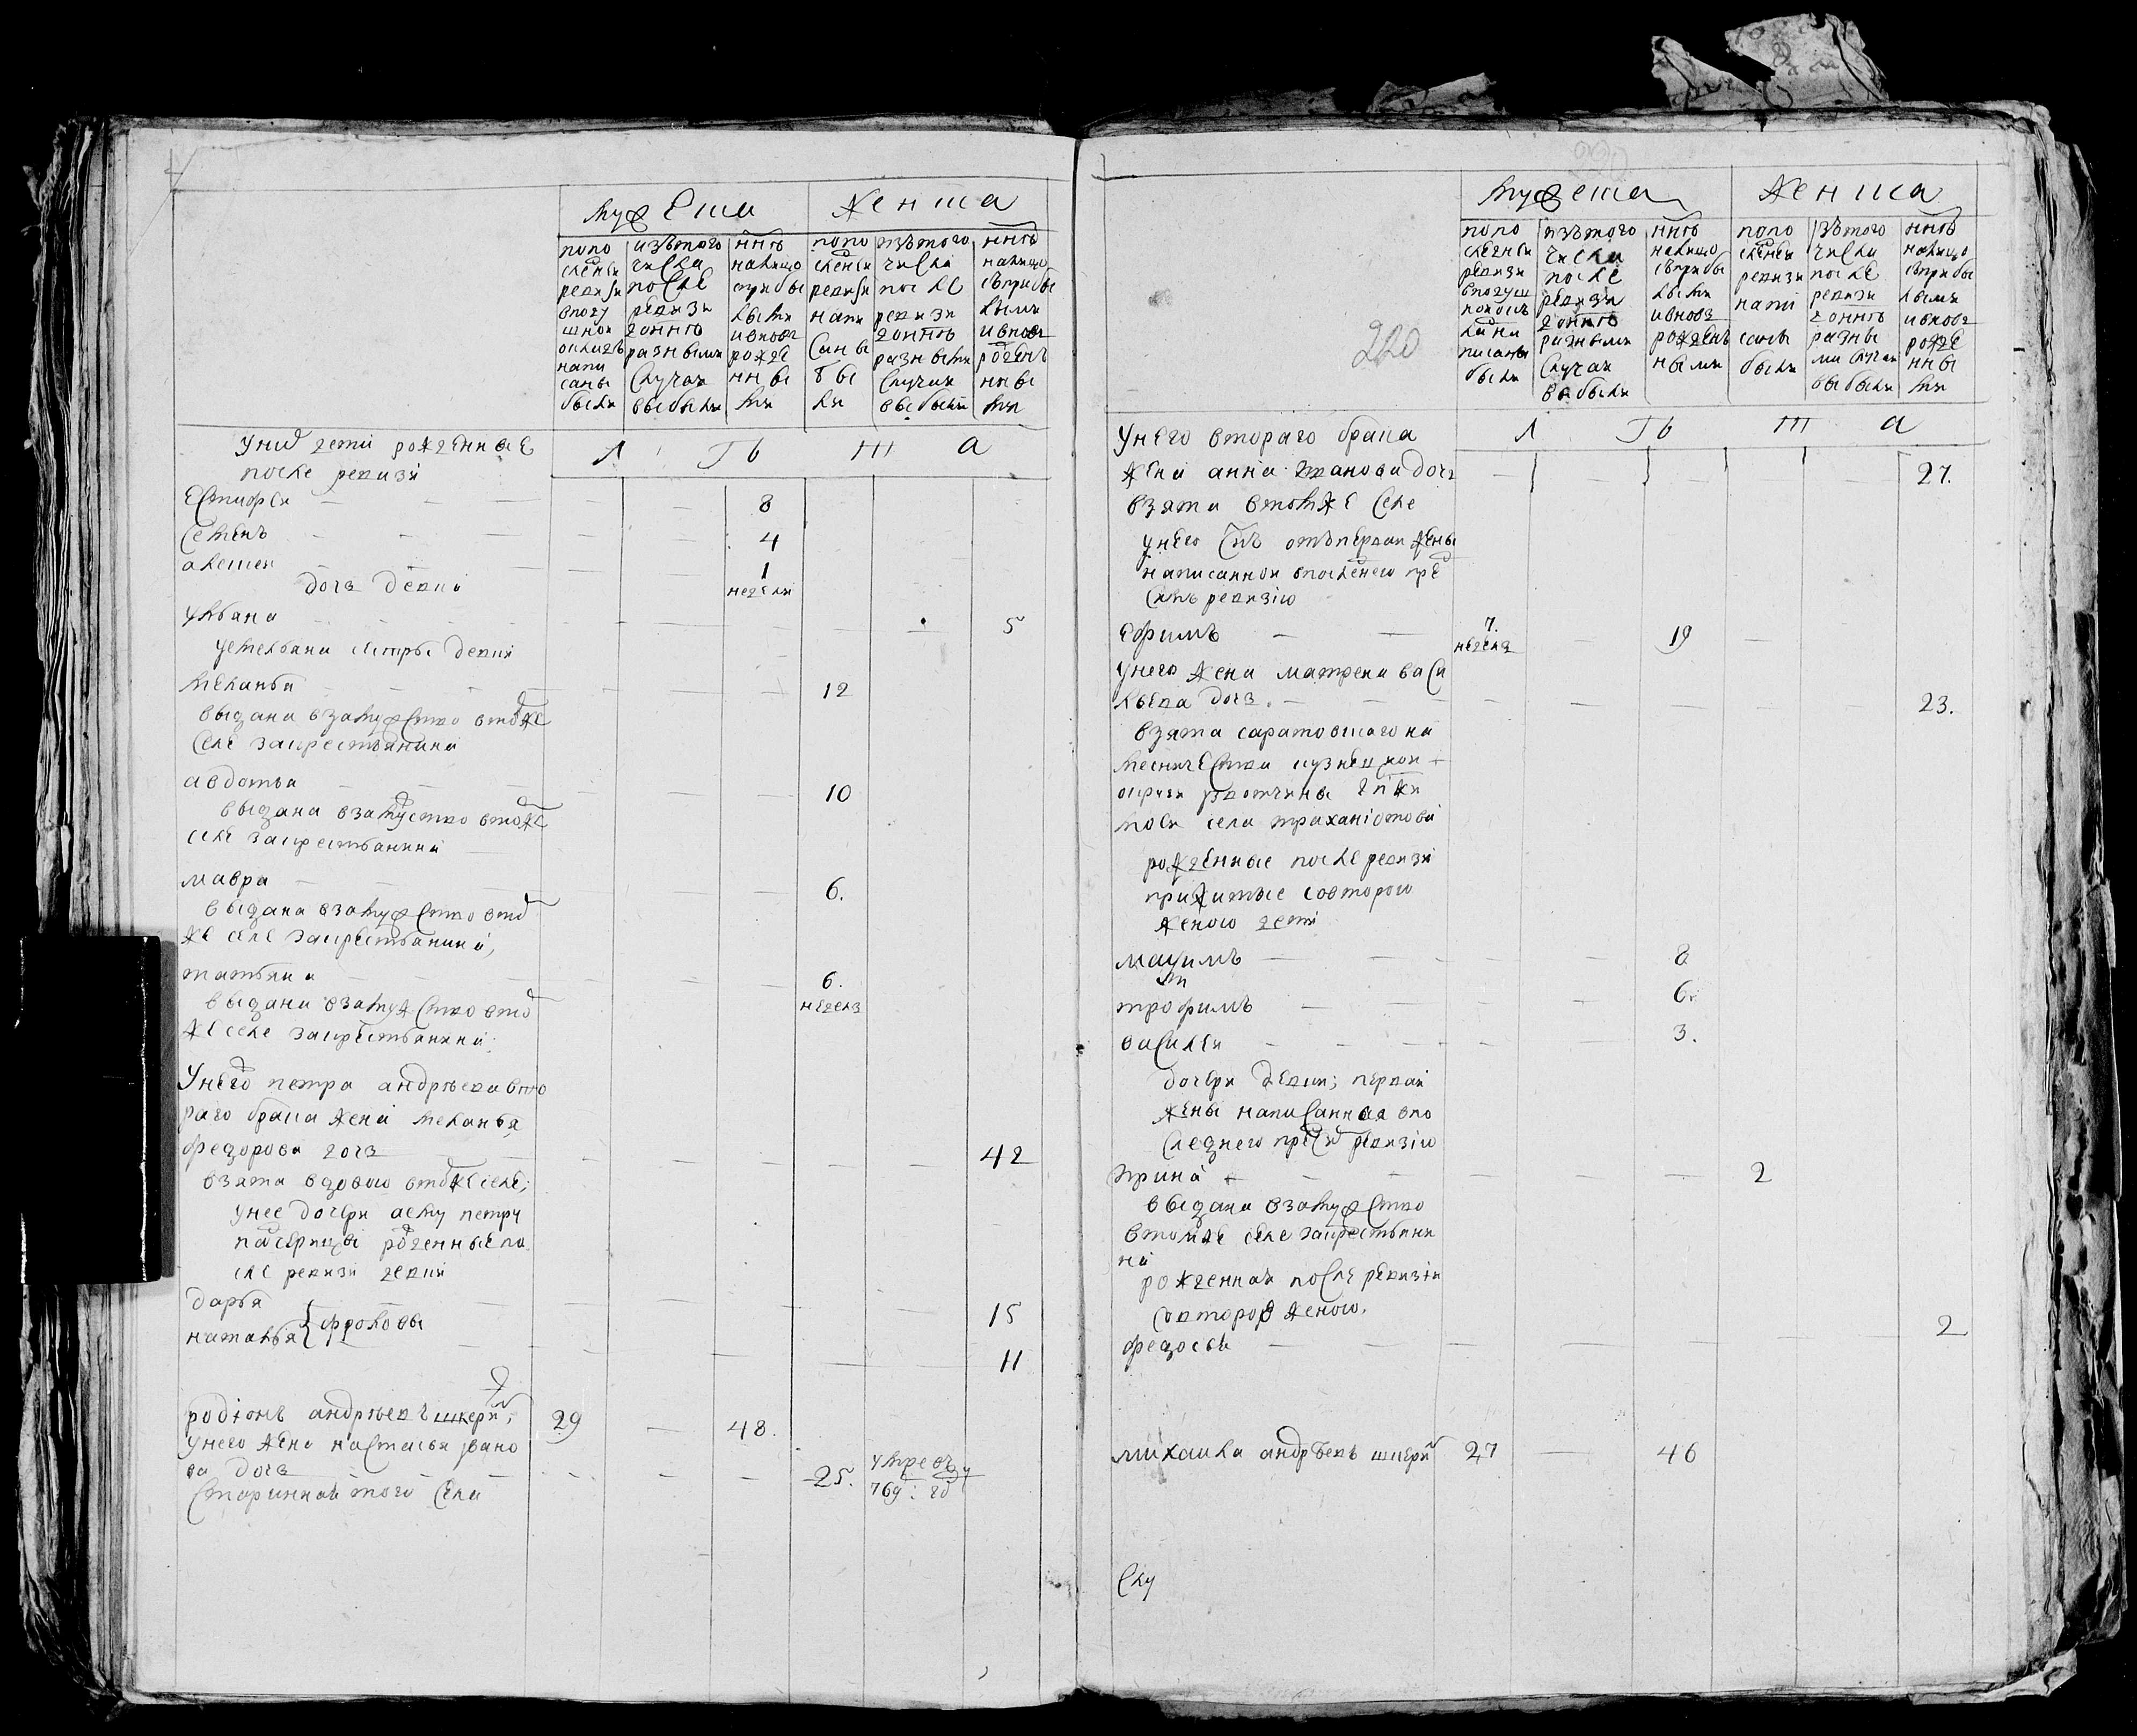 мужеска
женска
попо
следнеи
ревизи
вподу
шнои
окладъ
напи
саны
были
изътого
числа
после
ревизи
донне
разными
случаи
выбыли
ннѣ
налицо
сприбы
лыми
ивновь
рожде
нны
ми
попо
следнеи
ревизи
напи
саны
бы
ли
изътого
числа
после
ревизи
донне
разными
случаи
выбыли
ннѣ
налицо
сприбы
лыми
ивновь
рожденъ
ны
ми
Л ѣ т а
униѵ дети рожденные
после ревизи
Естифеи
8
Семенъ
4
алешеи
1
недели
дочь девка
ульяна
5
сестры девки
меланья
12
выдана взамужство втоже
селе закрестьянина
авдотья
10
выдана взамуство втоже
селе закрестьянина
мавра
6.
выдана взамужство втом
же селе закрестьянина,
татьяна
6.
недель
выдана взамужство втом
же селе закрестьянина.
Унего петра андрѣева вто
раго брака жена меланья
федорова дочь
42
взята вдовою втомже селе,
унее дочери ему петру
падчерицы рожденные по
сле ревизи девки
дарья
15
наталья } фроловы
11
родионъ андрѣевъ
29
48.
унего жена настасья ивано
ва дочь
25.
умре въ
769: годУ
Старинная того села
220
мужеска
женска
попо
следнеи
ревизи
вподуш
номъ
писаны
были
изътого
числа
после
ревизи
донне
разными
случаи
выбыли
ннѣ
налицо
сприбы
лыми
ивновь
рожденъ
ными
попо
следнеи
ревизи
напи
саны
были
изътого
числа
после
ревизи
донне
разны
ми случаи
выбыли
ннѣ
налицо
сприбы
лыми
ивновь
рожде
нны
ми
Л ѣ т а
унего втораго брака
жена анна иванова дочь
27.
взята втомже селе
унего снъ отпервои жены
написаннои впоследнею пре
ревизию
ефимъ
7.
недель
19
унего жена матрена васи
льева дочь.
23.
взята саратовскаго на
месничества кузнецкои
округи вотчины
села траханиотова
рожденные после ревизи
прижитые совторою
женою дети
макимъ
8
трофимъ
6.
василеи
3.
дочери девки; первои
жены написанная впо
следнего пред сим ревизию
ирина
2
выдана взамужство
втомже селе закрестьяни
на
рожденная после ревизи
совторою женою.
федосья
2
михаила андрѣевъ
27
46
Ску